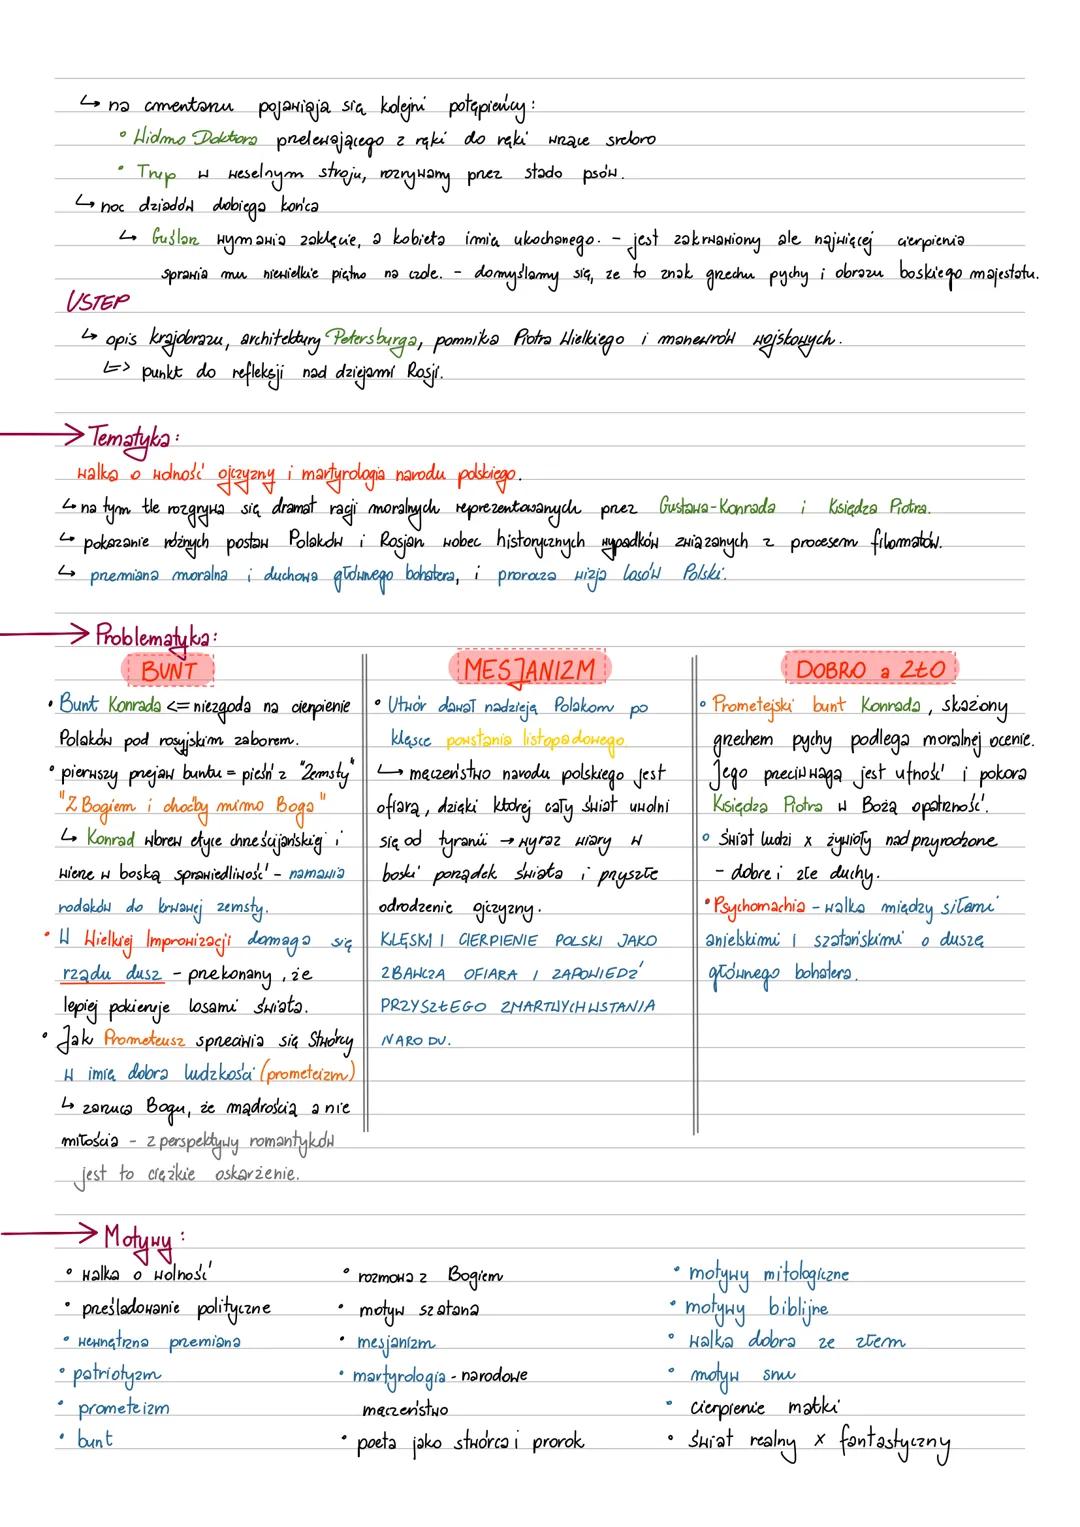 ↳ na cmentarzu pojawiają się kolejni potępieńcy:
• Widmo Doktora przelewającego z ręki do ręki wrzące srebro
• Trup w weselnym stroju, rozrywany przez stado psów.
↳ noc dziadów dobiega końca
↳ Guślarz wymawia zaklęcie, a kobieta imię ukochanego. - jest zakrwawiony ale najwięcej cierpienia
sprawia mu niewielkie piętno na czole. - domyślamy się, ze to znak grzechu pychy i obrazu boskiego majestatu.
USTEP
↳ opis krajobrazu, architektury Petersburga, pomnika Piotra Wielkiego i manewrów wojskowych.
↳> punkt do refleksji nad dziejami Rosji.
→ Tematyka:
walka o wolność ojczyzny i martyrologia narodu polskiego.
↳ na tym tle rozgrywa się dramat racji moralnych reprezentowanych przez Gustawa-Konrada i Księdza Piotra.
↳ pokazanie różnych postaw Polaków i Rosjan wobec historycznych wypadków związanych z procesem filomatów.
↳ przemiana moralna i duchowa głównego bohatera, i prorocza wizja losów Polski.
→ Problematyka:
BUNT
• Bunt Konrada <= niezgoda na cierpienie
Polaków pod rosyjskim zaborem.
• pierwszy przejaw buntu = pieśń z "Zemsty"
"Z Bogiem i choćby mimo Boga"
↳ Konrad wbrew etyce chrześcijańskiej i
wierze w boską sprawiedliwość - namawia
rodaków do krwawej zemsty.
• W Wielkiej Improwizacji domaga się
rządu dusz - przekonany, że
lepiej pokieruje losami świata.
• Jak Prometeusz sprzeciwia się Stwórcy
w imię dobra ludzkości (prometeizm)
↳ zarzuca Bogu, że mądrością a nie
miłością - z perspektywy romantyków
jest to ciężkie oskarżenie.
MESJANIZM
• Utwór dawał nadzieję Polakom po
klęsce powstania listopadowego.
↳ męczeństwo narodu polskiego jest
ofiarą, dzięki której cały świat uwolni
się od tyranii → wyraz wiary w
boski porządek świata i przyszłe
odrodzenie ojczyzny.
KLĘSKI I CIERPIENIE POLSKI JAKO
ZBAWCZA OFIARA I ZAPOWIEDŹ
PRZYSZŁEGO ZMARTWYCHWSTANIA
NARODU.
DOBRO a ZŁO
• Prometejski bunt Konrada, skażony
grzechem pychy podlega moralnej ocenie.
Jego przeciwwagą jest ufność i pokora
Księdza Piotra w Bożą opatrzność.
• Świat ludzi x żywioły nadprzyrodzone
- dobre i złe duchy.
• Psychomachia - walka między siłami
anielskimi i szatańskimi o duszę
głównego bohatera.
→ Motywy:
• walka o wolność
• prześladowanie polityczne
• wewnętrzna przemiana
• patriotyzm
• prometeizm
• bunt
• rozmowa z Bogiem
• motyw szatana
• mesjanizm
• martyrologia - narodowe
męczeństwo
• poeta jako stwórca i prorok
• motywy mitologiczne
• motywy biblijne
• walka dobra ze złem
• motyw snu
• cierpienie matki
• świat realny x fantastyczny